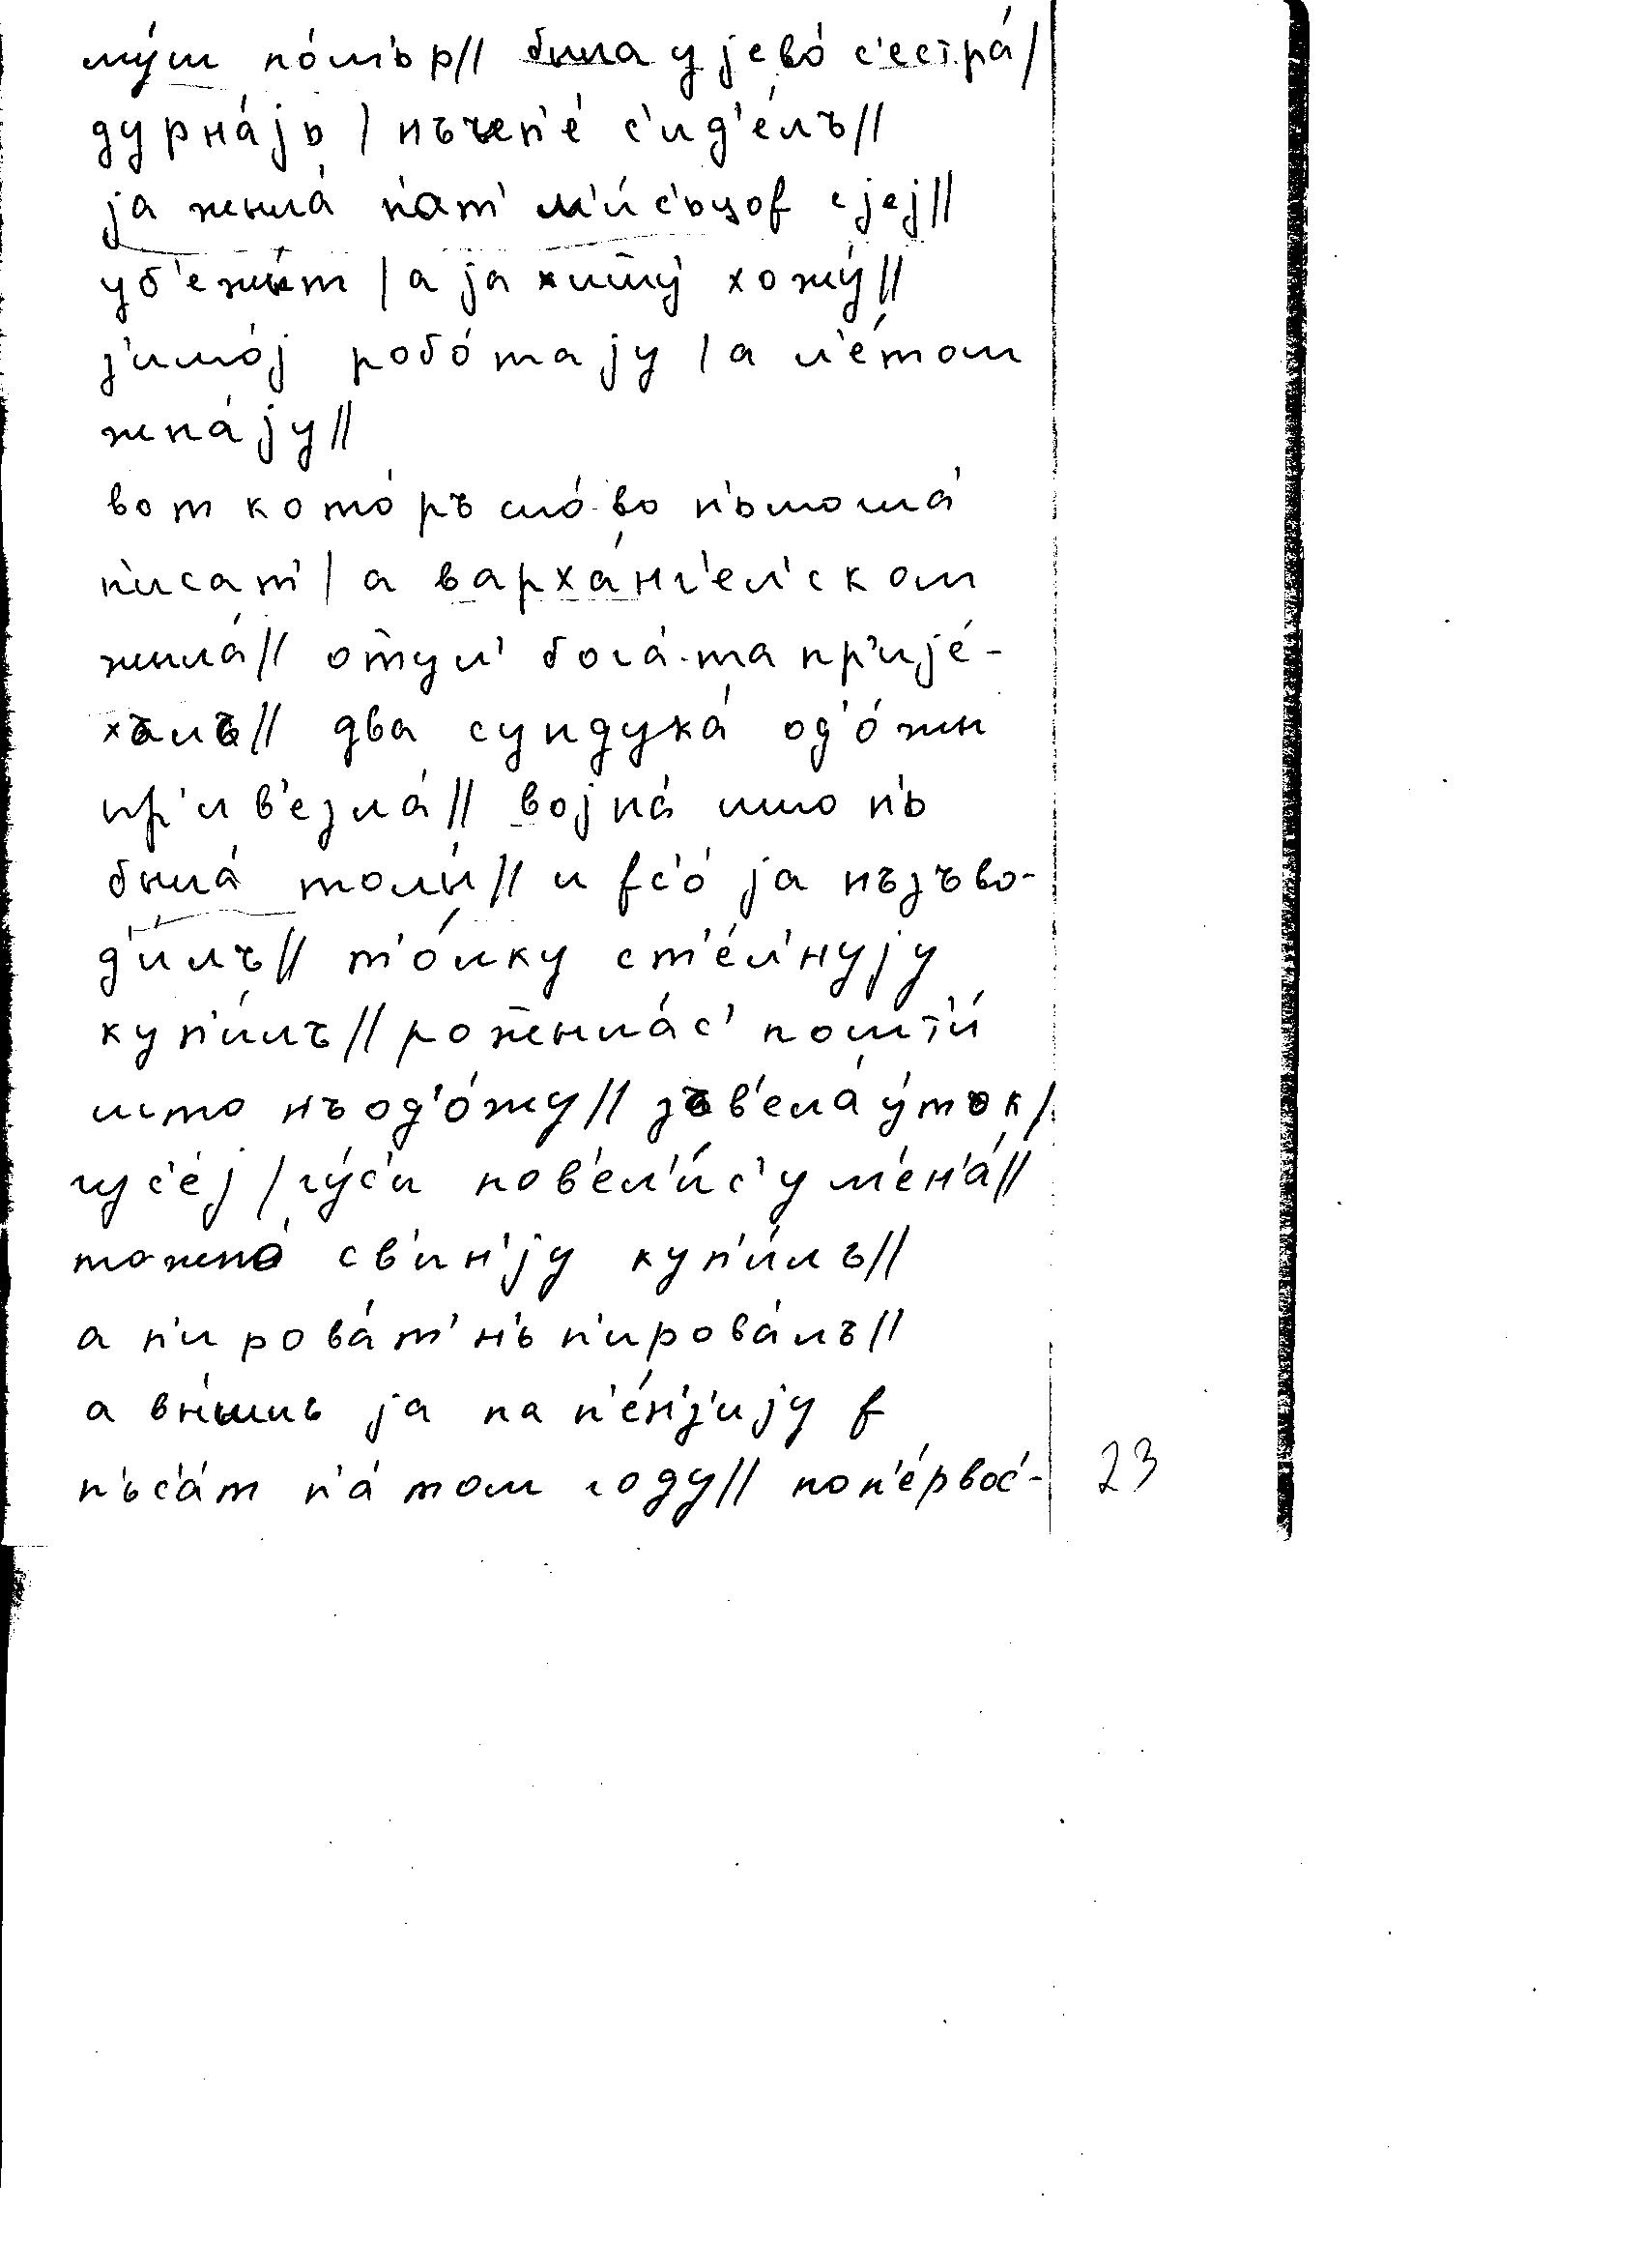 му́ш по́м'ьр// была у јево́ с'естра́/
дурна́јь / нъчеп'е́ с'ид'е́лъ//
ја жыла́ п'ат' м'и́с'ьцоf с јеј//
уб'ежы́т / а ја хожу́//
з'имо́ј робо́тају / а л'е́том
жна́ју//
вот кото́ръ сло́во н'ьмошла́
п'исат' / аварха́нг'ел'ском
жыла́// отӯл' бога́та пр'ије́-
хълъ// два сундука́ од'о́жы
пр'ив'езла́// војна́ што н'ь
была́ толы́// и fс'о́ ја нъзъво-
д'и́лъ// т'о́лку ст'е́л'нују
куп'и́лъ// рож̄ылас' пошт'и́
што нъод'о́жу// зъв'ела у́тък/
гус'е́ј / гу́с'и пов'ел'и́с' у м'ен'а́//
можно́ св'ин'ју куп'и́лъ//
а п'ирова́т' н'ь п'ирова́лъ//
а вны́шь ја на п'е́нз'ију f
п'ьс'а́т п'а́том году// поп'е́рвос'-
23